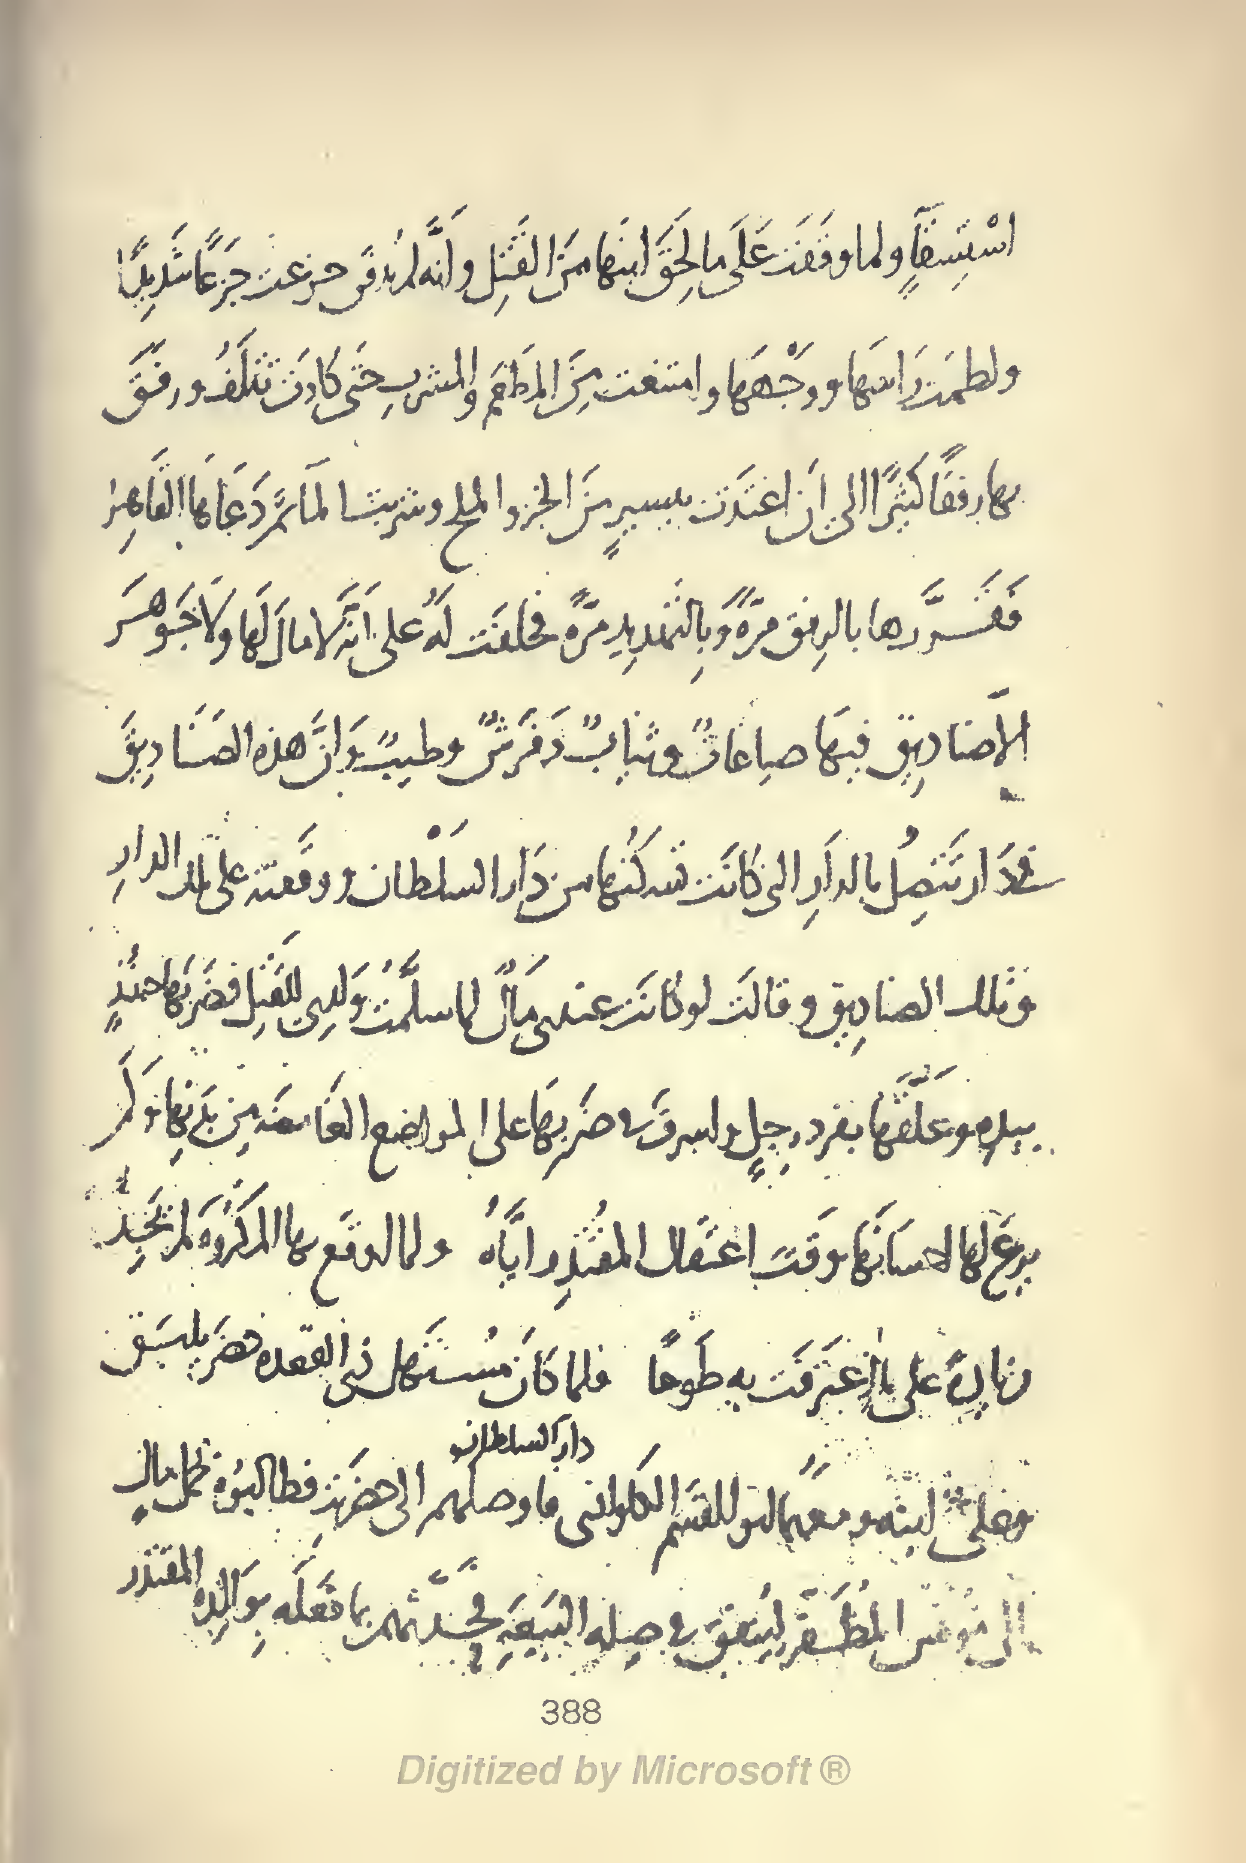 اسْتِسقَاءٍ ولما وقفت عَلَى ما لحِقَ ابنَها مِنَ القَتِل وانَّه لم يُدفن جزعت جَزَعًا شَدِيدًا
ولطمت رَاسَها ووجْهَهَا وامتنعت مِنَ المطعَم والمشربِ حَتى كادَت تتلَفُ ورفقَ
بها رفقًا كثيرًا الى اَن اغتدَت بيسيرٍ مِنَ الخبز والملح وشربت المآ ثمَّ دَعَا بها القَاهِر
فَقَرَّرها بالرِفق مرّةً وَبِالتهديدِ مرّةً فحلفَت لَهُ على اَنَّه لا مالَ لَها ولا جَوهَر
الاّ صناديِق فيها صياغاتٌ وثيابٌ وفَرَشٌ وطيبٌ وَانَّ هذه الصَنَادِيقَ
فى دَار تتصِلُ بالدارِ التى كانَت تسكنُها من دَار السلْطان ووقَفته على تلك الدارِ
وتلك الصنادِيق وقالت لو كانَت عندى مَالٌ لما سلّمتُ وَلدِى للقَتِل فضَرَبَها حينئذٍ
بيدِهِ وعَلّقَها بفرد رِجِلٍ واسرفَ فى ضَرَبِها على المواضع الغَامضَه مِن بَدَنِها وَلَم
يرعَ لها احسَانَها وَقتَ اعتقال المقتدِر ايَّاهُ ولما اوقع بها المكرُوهَ لم يَجِدْ
زيادِةً على ما اعتَرَفَت به طَوعًا فلما كانَ مُستهَل ذى القعده حضَرَ يلبَق
وعلى ابنه ومعهما ابو القسَم الكلواذى
دار السلطان
فاوصلهم الى حضرته فطالبوُه بحمل مالٍ
الى مونس المُظَفّر ليُنفقَ فى صِلِه البَيعَه فحَدّثهم بما فعَلَه بوَالِده المقتدر
388
Digitized by Microsoft ®